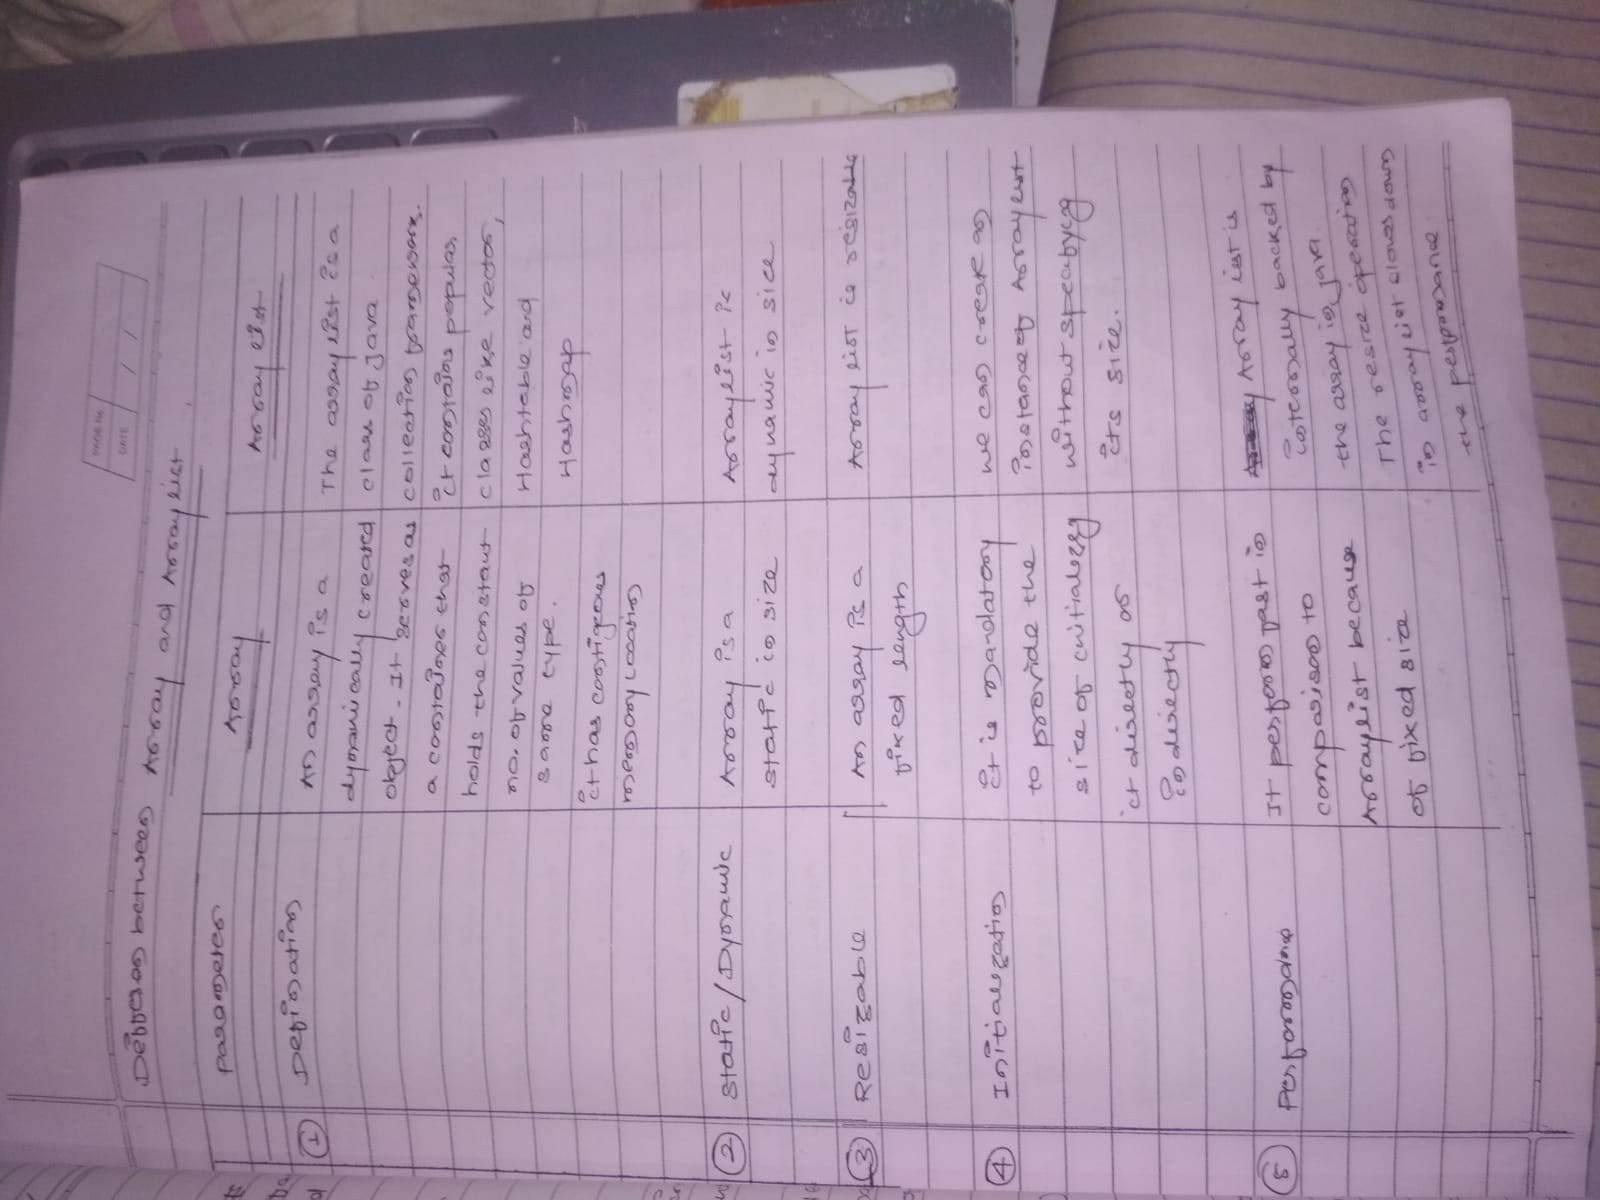 PAGE No.
DATE / /
Differen between Array and Array list
Parameter
Array
Array list
① Defination
An array is a
dynamically created
object. It serves as
a container that
holds the constant
no. of values of
same type.
it has contigeous
memory location
The array list is a
class of java
collection framework.
it contains popular
classes like vector,
Hashtable and
Hashmap
② Static/Dynamic
Array is a
static in size
Array list is
dynamic in size
③ Resizable
An array is a
fixed length
Array list is resizable
④ Initialization
it is mandatory
to provide the
size of initializg
it directly or
indirectly
we can create an
instance of Array list
without specifyig
its size.
⑤ Performance
It perform fast in
comparison to
Array list because
of fixed size
Array list is
internally backed by
the array in java.
The resize operation
in array list slows down
the performance